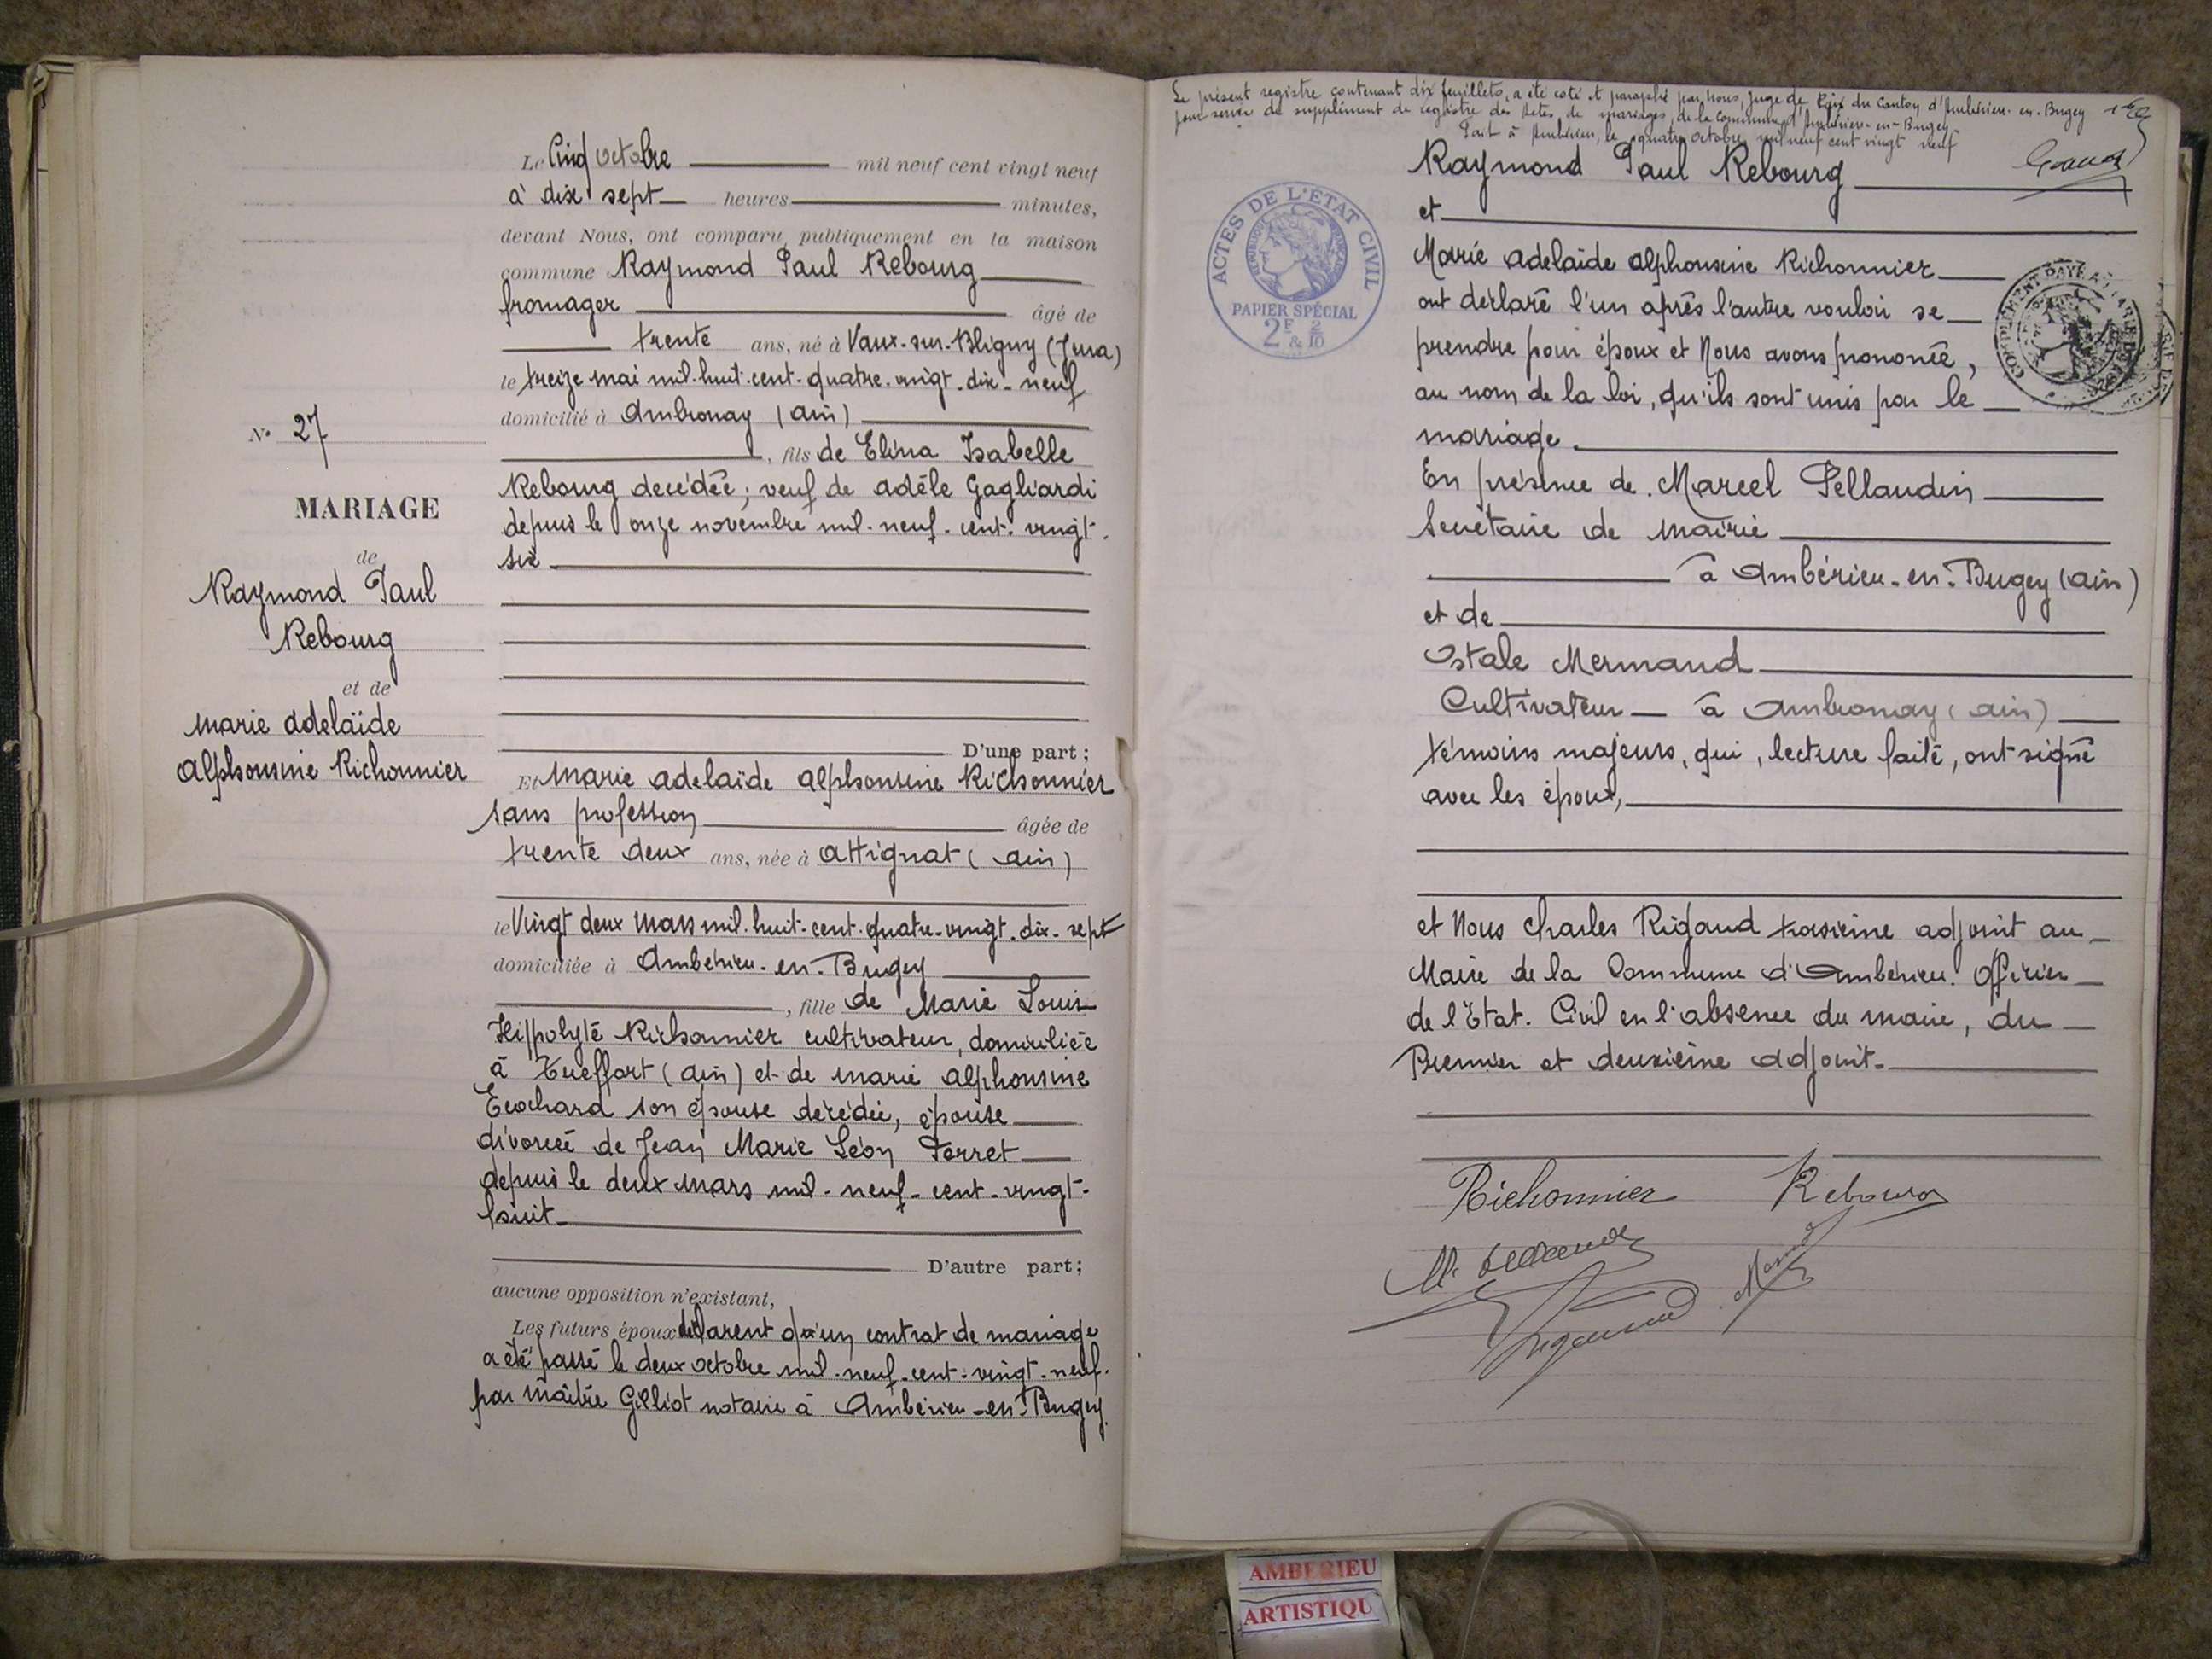 Le Cinq octobre mil neuf cent vingt neuf
à dix sept heures minutes,
devant Nous, ont comparu publiquement en la maison
commune Raymond Paul Rebourg
fromager âgé de
trente ans, né à Vaux-sur-Bligny (Jura)
le treize mai mil-huit-cent-quatre-vingt-dix-neuf
domicilié à Ambronay (Ain)
, fils de Elina Isabelle
Rebourg decédée; veuf de Adèle Gagliardi
depuis le onze novembre mil-neuf-cent-vingt-
six
N° 27
MARIAGE
de
Raymond Paul
Rebourg
et de
Marie Adelaïde
Alphonsine Richonnier
D'une part;
Et Marie Adelaïde Alphonsine Richonnier
sans profession âgée de
trente deux ans, née à Attignat (Ain)
le Vingt deux Mars mil-huit-cent-quatre-vingt-dix-sept
domiciliée à Ambérieu-en-Bugey
, fille de Marie Louis
Hippolyte Richonnier cultivateur, domiciliée
à Treffort (Ain) et de Marie Alphonsine
Ecochard son épouse décédée, épouse
divorcée de Jean Marie Léon Perret
depuis le deux Mars mil-neuf-cent-vingt-
huit
D'autre part;
aucune opposition n'existant,
Les futurs époux déclarent qu'un contrat de mariage
a été passé le deux octobre mil-neuf-cent-vingt-neuf-
par Maître Gilliot notaire à Ambérieu-en-Bugey
Le présent registre contenant dix feuillets, a été coté et paraphé par Nous, Juge de Paix du Canton d'Ambérieu-en-Bugey
pour servir de supplément de registre des Actes de mariages de la commune d'Ambérieu-en-Bugey
Fait à Ambérieu, le quatre octobre mil neuf cent vingt neuf
Raymond Paul Rebourg
et
Marie Adelaïde Alphonsine Richonnier
ont déclaré l'un après l'autre vouloir se
prendre pour époux et Nous avons prononcé,
au nom de la loi, qu'ils sont unis par le
mariage.
En présence de Marcel Pellaudin
Secrétaire de Mairie
à Ambérieu-en-Bugey (Ain)
et de
Mermand
Cultivateur à Ambronay (Ain)
témoins majeurs, qui, lecture faite, ont signé
avec les époux,
et Nous Charles Rigaud troisième adjoint au
Maire de la Commune d'Ambérieu. Officier
de l'Etat-Civil en l'absence du maire, du
Premier et deuxième adjoint.
Richonnier Rebourg
ACTES DE L'ÉTAT CIVIL
PAPIER SPÉCIAL
2F 2/10
&
AMBERIEU
ARTISTIQU